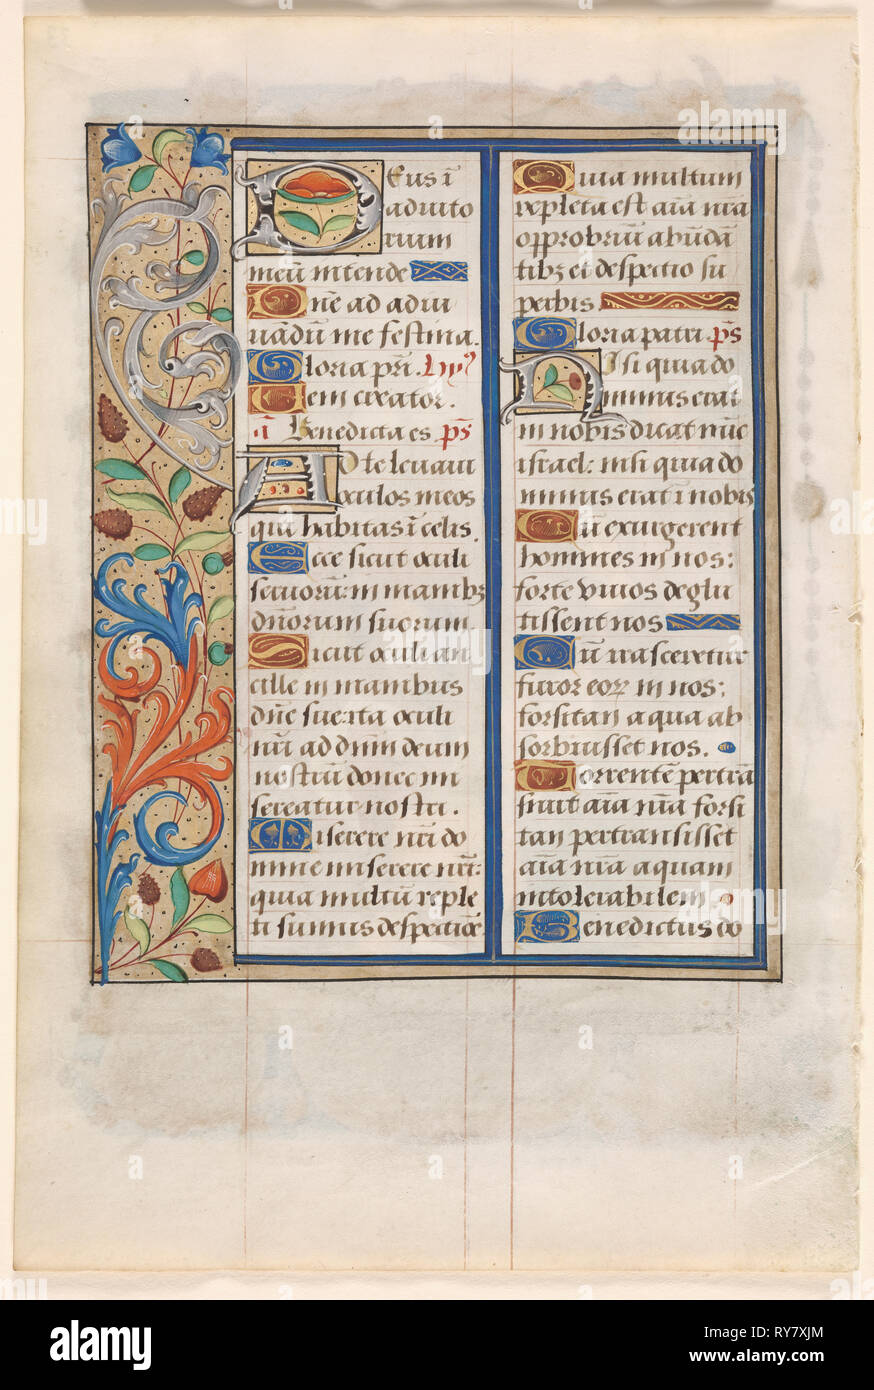 Deus ī
adiuto
rium
meū intende
Dñe ad adiu
uādū me festina.
Gloria pr̄i. hym9
Mem creator.
añ Benedicta es. ps̄
AD te leuaui
oculos meos
qui habitas ī celis.
Ecce sicut oculi
seruorū: in manibꝫ
dñorum suorum.
Sicut oculi an
cille in manibus
dñe sue: ita oculi
nr̄i ad dñm deum
nostrū donec mi
sereatur nostri.
Miserere nr̄i do
mine miserere nr̄i:
quia multū reple
ti sumus despectiōe
Quia multum
repleta est aīa nr̄a
opprobriū abūdā
tibꝫ et despectio su
perbis
Gloria patri ps̄
Nisi quia do
minus erat
in nobis dicat nūc
israel: nisi quia do
minus erat ī nobis
Cū exurgerent
homines in nos:
forte viuos deglu
tissent nos
Cū irasceretur
furor eoꝝ in nos:
forsitan aqua ab
sorbuisset nos.
Torrentē pertrā
siuit aīa nr̄a forsi
tan pertransisset
aīa nr̄a aquam
intolerabilem.
Benedictus do
alamy
Image ID: RY7XJM
www.alamy.com